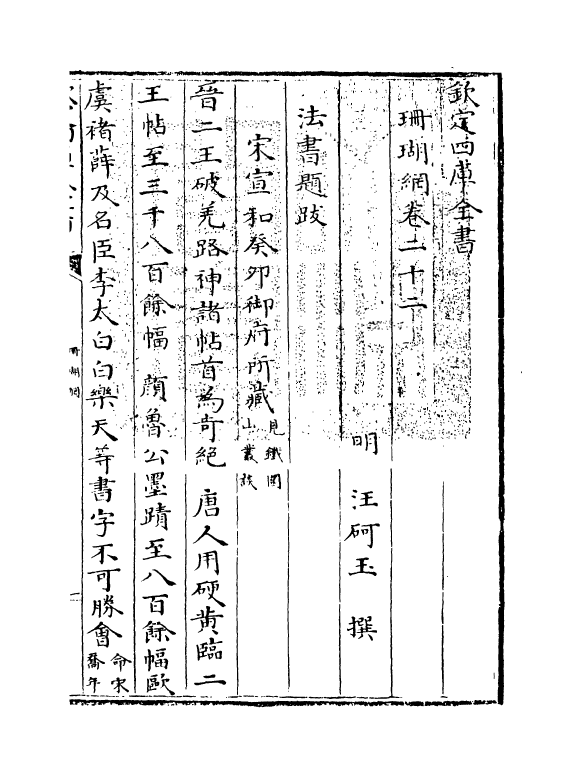 欽定四庫全書
珊瑚網卷二十二
明 汪砢玉 撰
法書題跋
宋宣和癸卯御府所藏見鐵圍山叢談
晉二王破羗路神諸帖首為奇絕 唐人用硬黄臨二
王帖至三千八百餘幅 顔魯公墨蹟至八百餘幅歐
虞褚薛及名臣李太白白樂天等書字不可勝會命宋喬年
珊瑚網
一